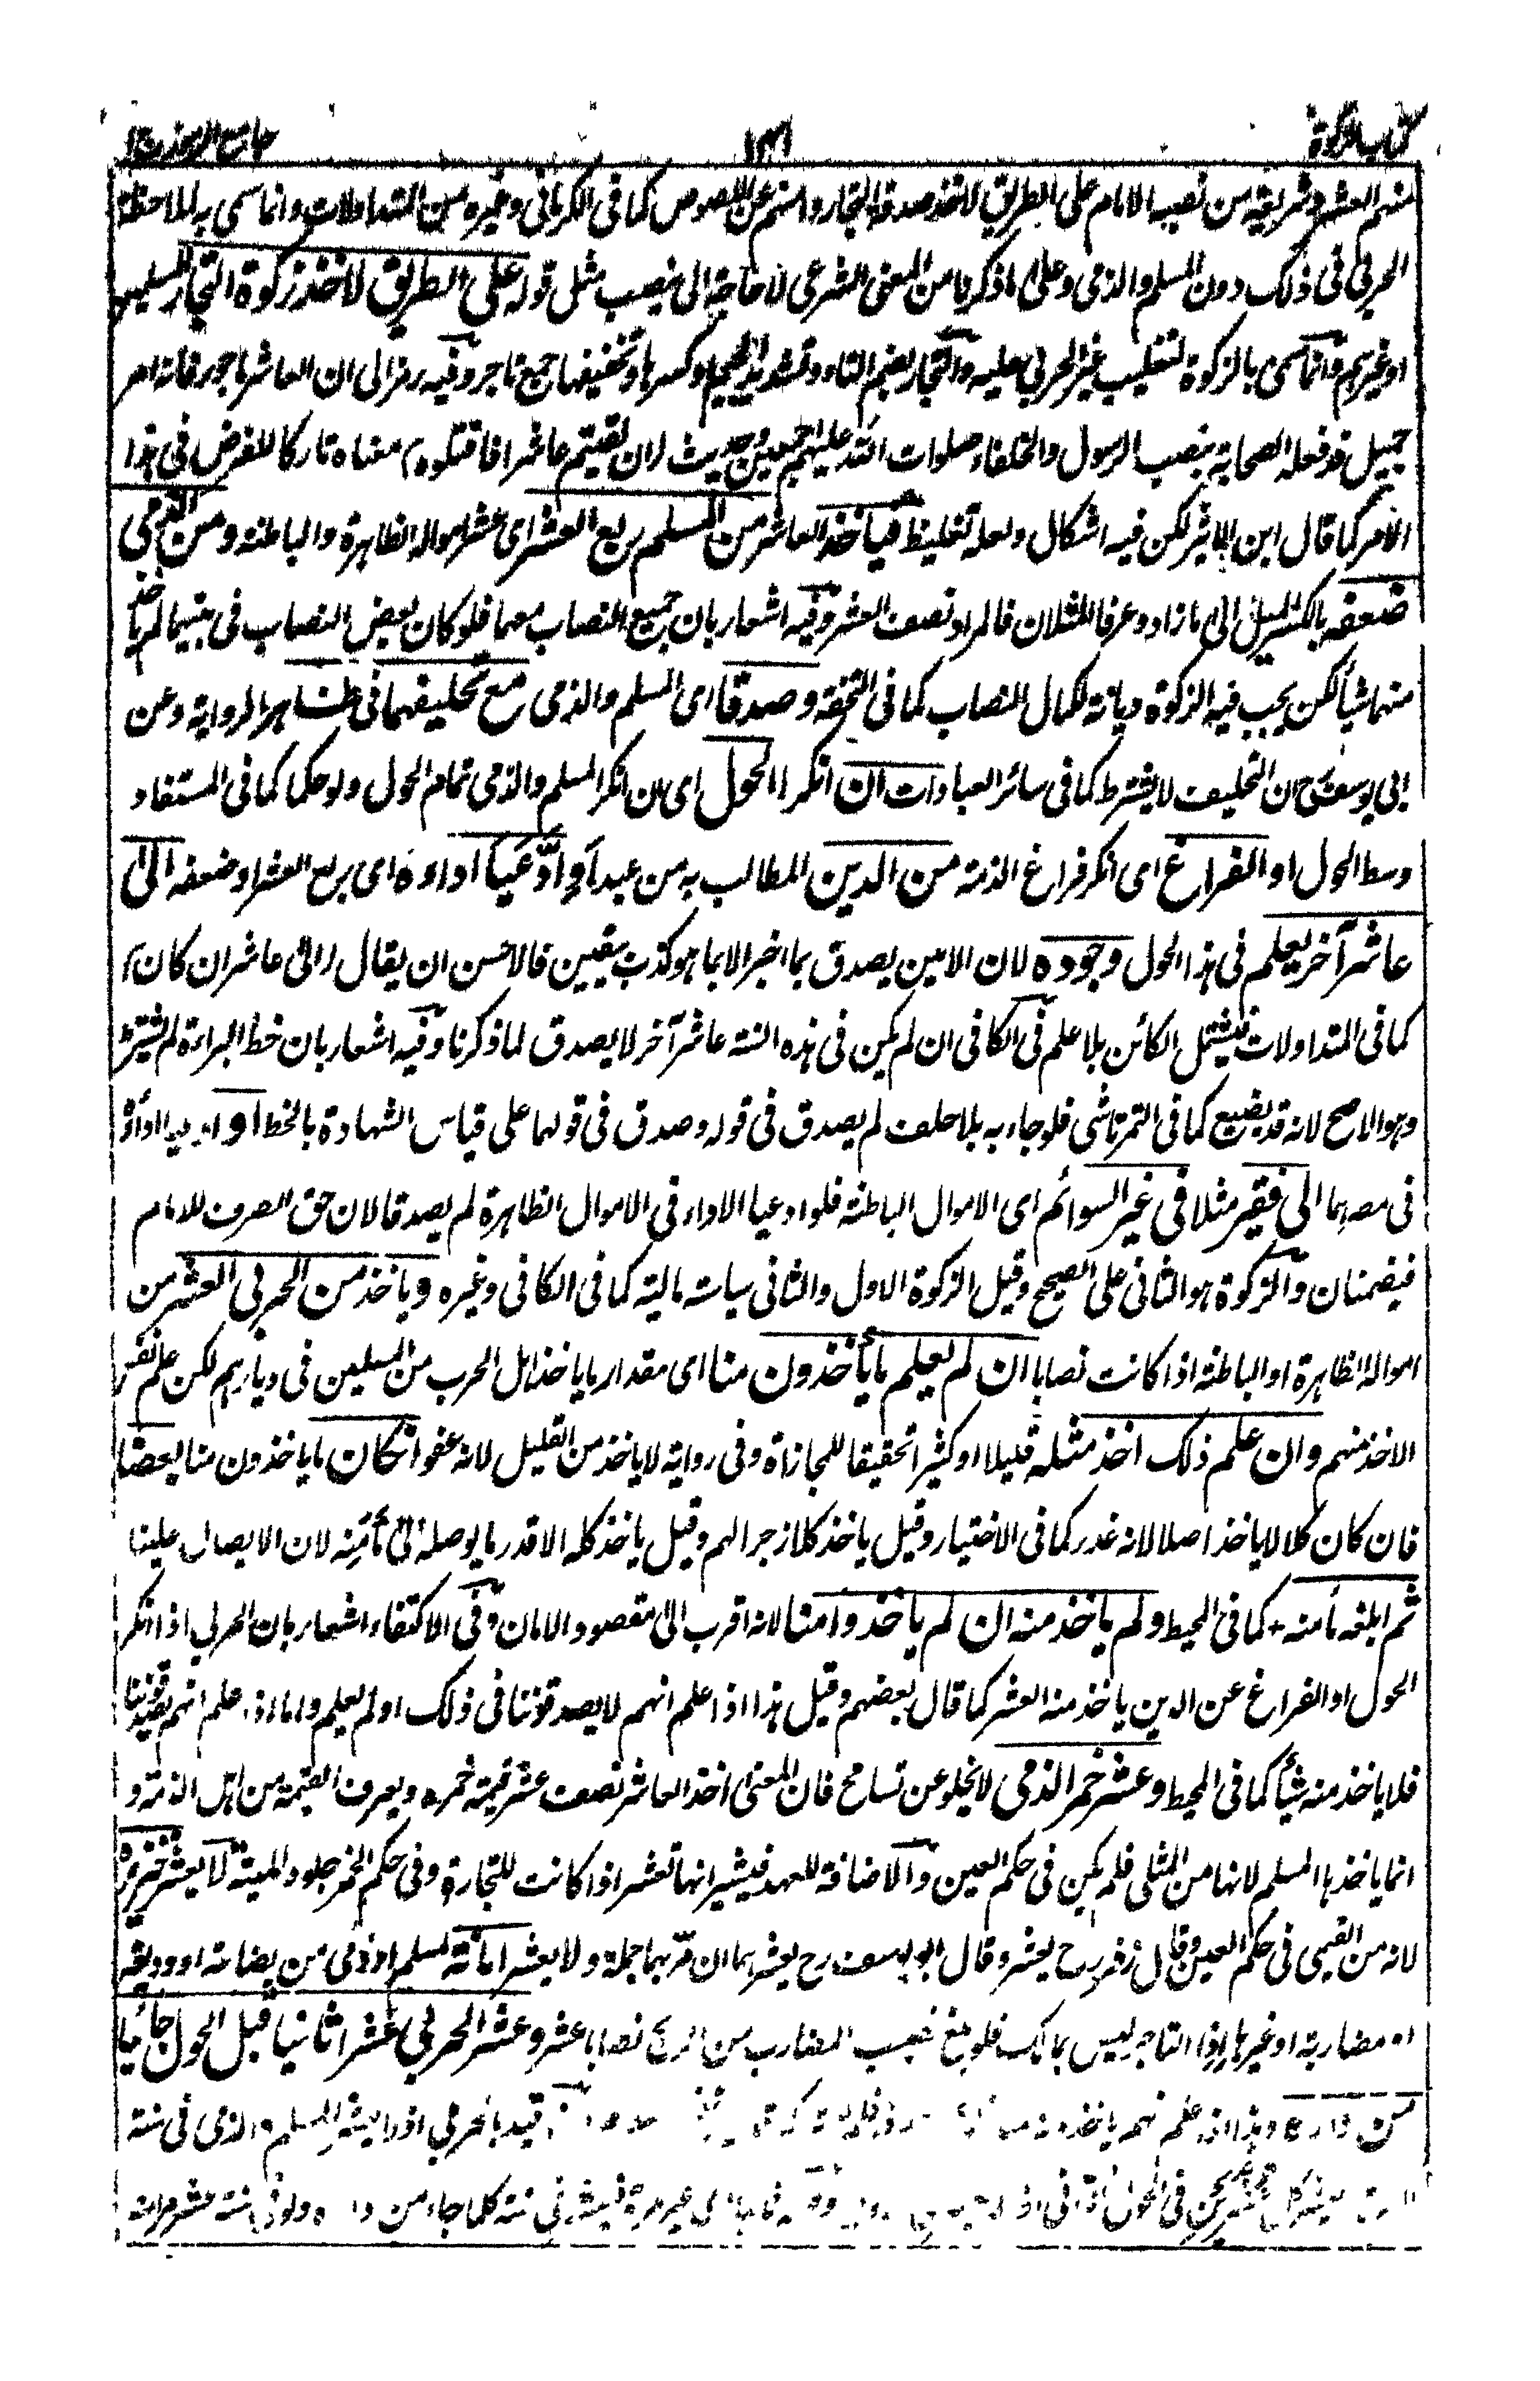 كتاب الزكوة ١٣١ جامع الرموز ج ١
منهم العشر وشريعة من نصبه الامام على الطريق لاخذ صدقة التجار وامنهم عن اللصوص كما فى الكرمانى وغيره من المتداولات وانما سمى به لملاحظة
الحربى فى ذلك دون المسلم والذمى وعلى ماذكرنا من المعنى الشرعى لا حاجة الى نصب مثل قوله على الطريق لاخذ زكوة التجار المسلمين
او غيرهم وانما سمى بالزكوة لتغليب غير الحربى عليه والتجار بضم التاء وتشديد الجيم او كسرها وتخفيفها جمع تاجر وفيه رمز الى ان العاشر ماجور فانه امر
جميل قد فعله الصحابة بنصب الرسول والخلفاء صلوات الله عليهم اجمعين وحديث ان لقيتم عاشرا فاقتلوه م معناه تاركا للفرض فى هذا
الامر كما قال ابن الاثير لكن فيه اشكال ولعله تغليظ فياخذ العاشر من المسلم ربع العشر اى عشر امواله الظاهرة والباطنة ومن الذمى
ضعفه بالكسر المثل الى مازاد وعرفا المثلان فالمراد نصف العشر وفيه اشعار بان جميع النصاب معهما فلو كان بعض النصاب فى بيتهما لم ياخذ
منهما شيأ لكن يجب فيه الزكوة ديانة لكمال النصاب كما فى التحفة وصدقا اى المسلم والذمى مع تحليفهما فى ظاهر الرواية وعن
ابى يوسف رح ان التحليف لا يشترط كما فى سائر العبادات ان انكرا الحول اى ان انكر المسلم والذمى تمام الحول ولو حكما كما فى المستفاد
وسط الحول او الفراغ اى انكر فراغ الذمة من الدين المطالب به من عبد او ادّعيا اداءه اى ربع العشر او ضعفه الى
عاشر آخر يعلم فى هذا الحول وجوده لان الامين يصدق بما اخبر الا بما هو كذب بيقين فالاحسن ان يقال الى عاشر ان كان
كما فى المتداولات فيشتمل الكائن بلا علم فى الكافى ان لم يكن فى هذه السنة عاشر آخر لا يصدق لما ذكرنا وفيه اشعار بان خط البراءة لم يشترط
وهو الاصح لانه قد يضيع كما فى التمرتاشى فلو جاء به بلا حلف لم يصدق فى قوله وصدق فى قولهما على قياس الشهادة بالخط او اداءه
فى مصرهما الى فقير مثلا فى غير السوائم اى الاموال الباطنة فلو ادعيا الاداء فى الاموال الظاهرة لم يصدقا لان حق الصرف للامام
فيضمنان والزكوة هو الثانى على الصحيح وقيل الزكوة الاول والثانى سياسة مالية كما فى الكافى وغيره وياخذ من الحربى العشر من
امواله الظاهرة او الباطنة اذا كانت نصابا ان لم يعلم ما يأخذون منا اى مقدار ما ياخذ اهل الحرب من المسلمين فى ديارهم لكن علم نفس
الاخذ منهم وان علم ذلك اخذ مثله قليلا او كثيرا تحقيقا للمجازاة وفى رواية لا ياخذ من القليل لانه عفو ان كان ما ياخذون منا بعضا
فان كان كلا لا ياخذ اصلا لانه غدر كما فى الاختيار وقيل ياخذ كلا زجرا لهم وقيل ياخذ كله الا قدر ما يوصله الى مأمنه لان الايصال علينا
ثم ابلغه مأمنه كما فى المحيط ولم ياخذ منه ان لم ياخذوا منا لانه اقرب الى مقصود الامان وفى الاكتفاء اشعار بان الحربى اذا انكر
الحول او الفراغ عن الدين ياخذ منه العشر كما قال بعضهم وقيل هذا اذا علم انهم لا يصدقوننا فى ذلك او لم يعلم واما اذا علم انهم يصدقوننا
فلا ياخذ منه شيأ كما فى المحيط وعشر خمر الذمى لا يخلو عن تسامح فان المعنى اخذ العاشر نصف عشر قيمة خمره ويعرف القيمة من اهل الذمة و
انما ياخذها المسلم لانها من المثلى فلم يكن فى حكم العين والاضافة للعهد فيشير انها تعشر اذا كانت للتجارة وفى حكم الخمر جلود الميتة لا يعشر خنزيره
لانه من القيمى فى حكم العين وقال زفر رح يعشر وقال ابو يوسف رح يعشرهما ان مر بهما جملة ولا يعشر امانة لمسلم او ذمى من بضاعة او وديعة
او مضاربة او غيرها اذا التاجر ليس بمالك فلو بلغ نصيب المضارب من الربح نصابا عشر وعشر الحربى عشرا ثانيا قبل الحول جائيا
من داره وهذا اذا علم انهم ياخذون قيد بالحربى اذ لا يعشر المسلم والذمى فى سنة
فى سنة كلما جاء من داره ولو فى سنة عشر مرات